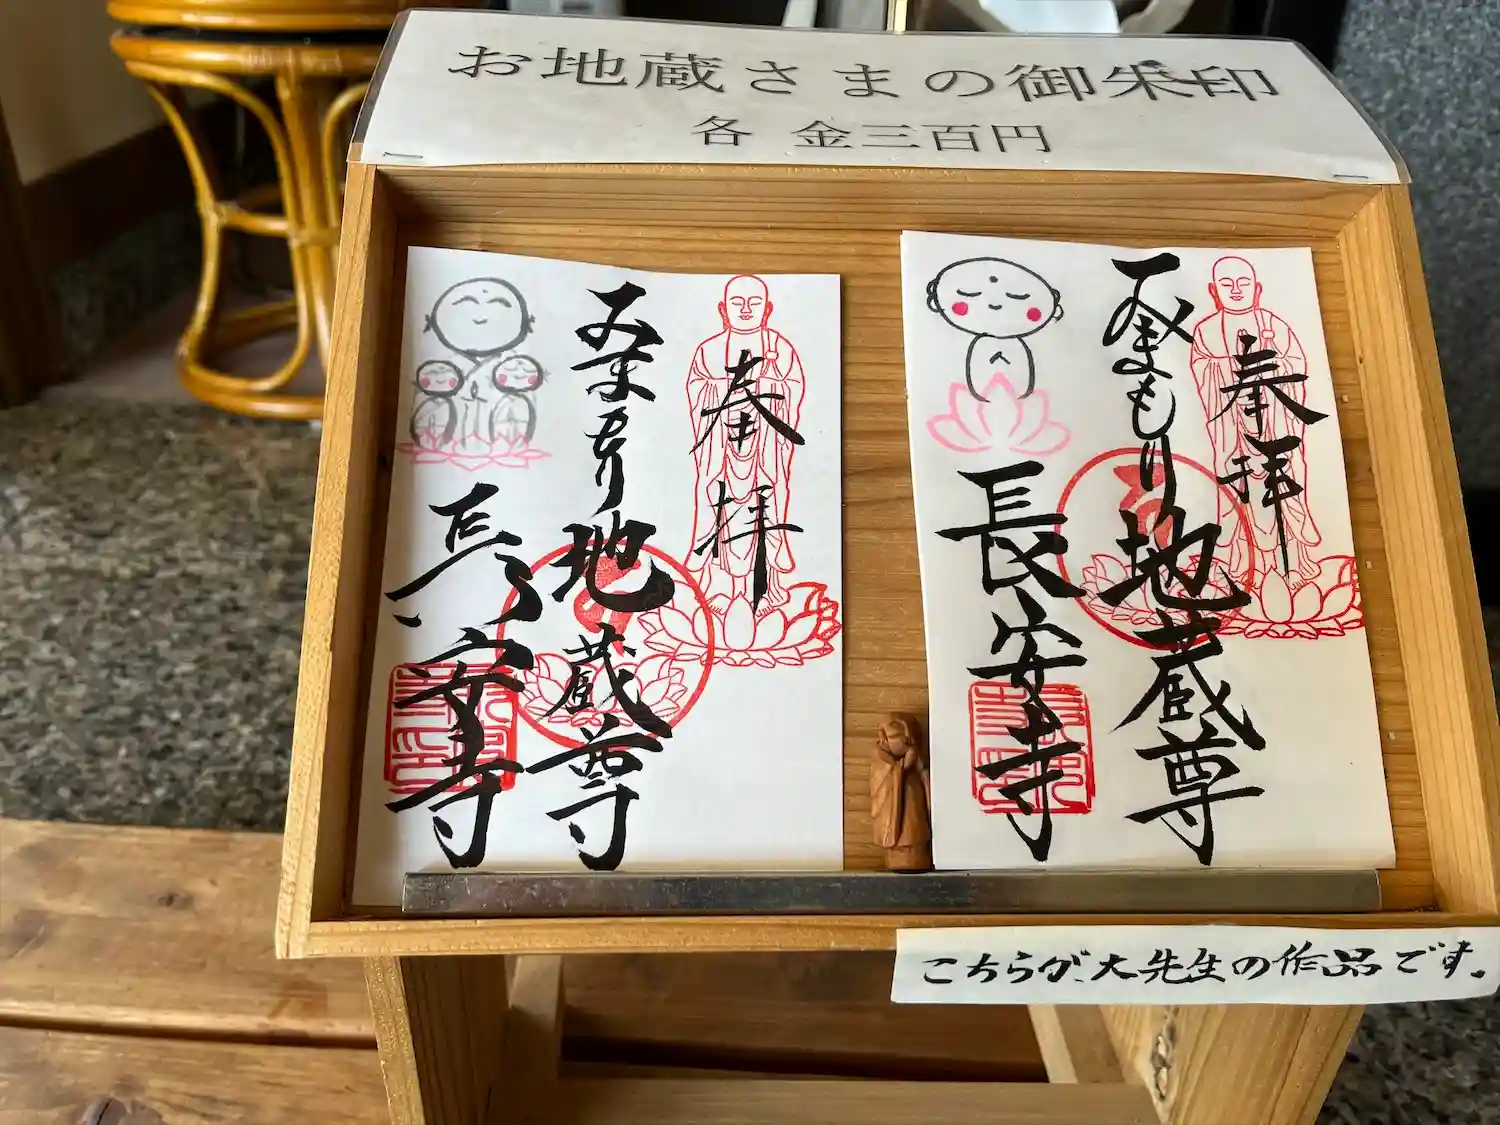 お地蔵さまの御朱印
各 金三百円
奉拝
みまもり地蔵尊
長安寺
奉拝
みまもり地蔵尊
長安寺
こちらが、大先生の作品です。